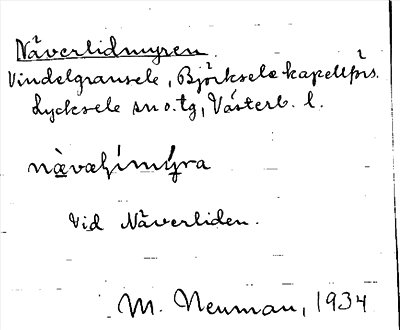 Näverlidmyren.
Vindelgransele, Björksele kapellförs.
Lycksele sn o. tg, Västerb. l.
Vid Näverliden.
M. Neuman, 1934